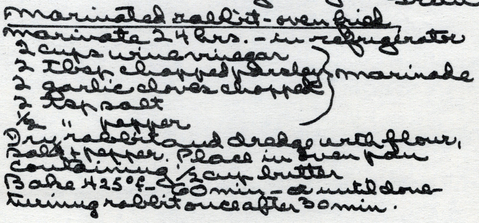 Marinated rabbit - oven fried
Marinate 24 hrs. - in refrigerator
2 cups wine vinegar
2 tbsp. chopped parsley } marinade
2 garlic cloves chopped
2 tsp salt
1/2 " pepper
Dry rabbit and dredge with flour,
salt & pepper. Place in oven pan
containing 1/2 cup butter
Bake 425° - 60 min - or until done
turning rabbit once after 30 min.